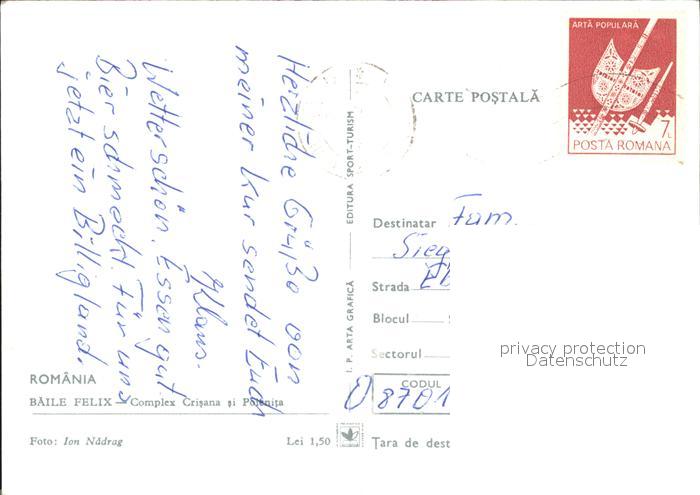 Herzliche Grüße von
meiner Kur sendet Euch
Klaus.
Wetter schön. Essen gut.
Bier schmeckt. Für uns
jetzt ein Billigland.
ROMÂNIA
BĂILE FELIX — Complex Crișana și Poienița
Foto: Ion Nădrag
Lei 1,50
I. P. ARTA GRAFICĂ
EDITURA SPORT-TURISM
CARTE POȘTALĂ
ARTĂ POPULARĂ
7L
POSTA ROMANA
Destinatar Fam.
Sieg
Strada
Blocul
Sectorul
CODUL
D 8701
Țara de dest
privacy protection
Datenschutz